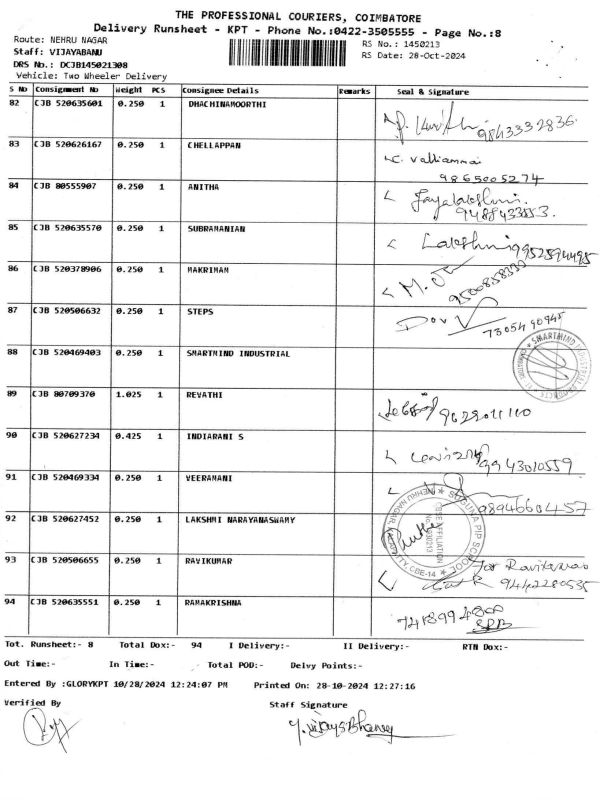 THE PROFESSIONAL COURIERS, COIMBATORE
Delivery Runsheet - KPT - Phone No.:0422-3505555 - Page No.:8
Route: NEHRU NAGAR
RS No.: 1450213
Staff: VIJAYABANU
RS Date: 28-Oct-2024
DRS No.: DCJB145021308
Vehicle: Two Wheeler Delivery
S No Consignment No Weight PCS Consignee Details Remarks Seal & Signature
82 CJB 520635601 0.250 1 DHACHINAMOORTHI
9843332836
83 CJB 520626167 0.250 1 CHELLAPPAN
C. Valliammai
9865005274
84 CJB 80555907 0.250 1 ANITHA
Jayalakshmi
85 CJB 520635570 0.250 1 SUBRAMANIAN
Lakshmi 9952594495
86 CJB 520378906 0.250 1 MAKRIMAM
9500858339
87 CJB 520506632 0.250 1 STEPS
7305490945
88 CJB 520469403 0.250 1 SMARTMIND INDUSTRIAL
SMARTMIND INDUSTRIAL PRODUCTS
89 CJB 80709370 1.025 1 REVATHI
9629011110
90 CJB 520627234 0.425 1 INDIARANI S
9943010559
91 CJB 520469334 0.250 1 VEERAMANI
9894660457
92 CJB 520627452 0.250 1 LAKSHMI NARAYANASWAMY
CBSE AFFILIATION
No: 1930213
NEHRU NAGAR, KALAPATTY, CBE-14
93 CJB 520506655 0.250 1 RAVIKUMAR
for Ravikumar
9442280535
94 CJB 520635551 0.250 1 RAMAKRISHNA
7418994800
Tot. Runsheet:- 8 Total Dox:- 94 I Delivery:- II Delivery:- RTN Dox:-
Out Time:- In Time:- Total POD:- Delvy Points:-
Entered By :GLORYKPT 10/28/2024 12:24:07 PM Printed On: 28-10-2024 12:27:16
Verified By Staff Signature